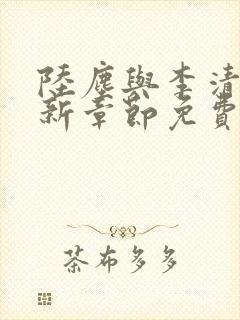 陸塵與李清
新章節免費
茶布多多